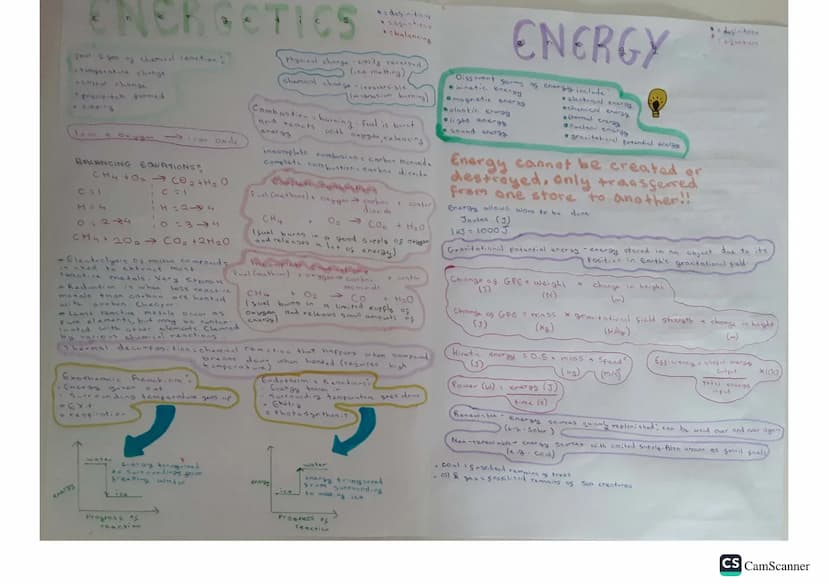 ENERGETICS
• = definitions
• = equations
• = balancing
signs of chemical reaction:
• temperature change
• colour change
• precipitate formed
Physical change - easily reversed
(ice melting)
chemical change - irreversible
Iron + oxygen → iron oxide
Combustion = burning. Fuel is burnt
and reacts with oxygen, releasing
energy
incomplete combustion = carbon monoxide
complete combustion = carbon dioxide
BALANCING EQUATIONS:
CH4 + O2 → CO2 + H2O
C = 1 C = 1
H = 4 H = 2 → 4
O = 2 → 4 O = 3 → 4
CH4 + 2O2 → CO2 + 2H2O
Fuel (methane) + oxygen → carbon dioxide + water
CH4 + O2 → CO2 + H2O
(fuel burns in a good supply of oxygen
and releases a lot of energy)
Fuel (methane) + oxygen → carbon monoxide + water
CH4 + O2 → CO + H2O
(fuel burns in a limited supply of
oxygen and releases small amounts of
energy)
• Electrolysis of molten compounds
is used to extract most
reactive metals. Very strong
• Reduction is when less reactive
metals than carbon are heated
with carbon
• Least reactive metals occur as
pure elements, but may be
with other elements
by various chemical reactions.
Thermal decomposition = chemical reaction that happens when compound
breaks down when heated (requires high
temperature)
Exothermic Reactions:
• Energy given out
• Surrounding temperature goes up
• respiration
Endothermic Reactions:
• Energy taken in
• Surrounding temperature goes down
• Photosynthesis
water
energy transferred
to surroundings from
freezing water
ice
energy
Progress of
reaction
water
energy transferred
from surrounding
to melting ice
ice
energy
Progress of
reaction
ENERGY
• = definitions
• = equations
Different forms of Energy include:
• kinetic energy
• magnetic energy
• elastic energy
• light energy
• sound energy
• electrical energy
• chemical energy
• thermal energy
• nuclear energy
• gravitational potential energy
Energy cannot be created or
destroyed, only transferred
from one store to another!!
Energy allows work to be done
Joules (J)
1KJ = 1000J
Gravitational potential energy - energy stored in an object due to its
position in Earth's gravitational field
Change of GPE = weight × change in height
(J) (N) (m)
Change of GPE = mass × gravitational field strength × change in height
(J) (kg) (N/kg) (m)
Kinetic energy = 0.5 × mass × speed²
(J) (kg) (m/s)²
Efficiency = useful energy output × 100
total energy input
Power (W) = energy (J)
time (s)
Renewable - Energy sources quickly replenished; can be used over and over again
(e.g. solar)
Non-renewable - energy sources with limited supply. Also known as fossil fuels
(e.g. coal)
• coal = fossilised remains of trees
• oil & gas = fossilised remains of sea creatures
CS CamScanner